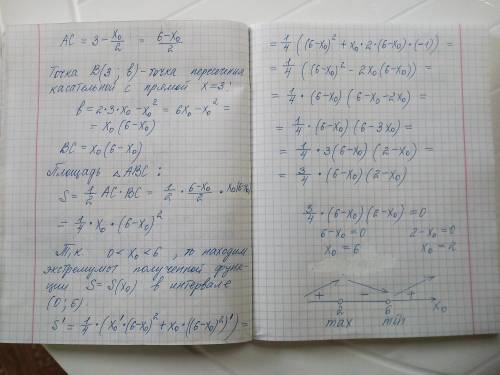 AC = 3 - x₀/2 = (6-x₀)/2
Точка B(3; b) - точка пересечения
касательной с прямой x=3:
b = 2·3·x₀ - x₀² = 6x₀ - x₀² =
= x₀(6-x₀)
BC = x₀(6-x₀)
Площадь △ABC:
S = 1/2 AC·BC = 1/2 · (6-x₀)/2 · x₀(6-x₀)
= 1/4 · x₀ · (6-x₀)²
Т.к. 0 < x₀ < 6, то находим
экстремумы полученной функ-
ции S = S(x₀) в интервале
(0; 6)
S' = 1/4 · (x₀'·(6-x₀)² + x₀·((6-x₀)²)') =
= 1/4 ((6-x₀)² + x₀·2·(6-x₀)·(-1)) =
= 1/4 ((6-x₀)² - 2x₀(6-x₀)) =
= 1/4 · (6-x₀)(6-x₀-2x₀) =
= 1/4 · (6-x₀)(6-3x₀) =
= 1/4 · 3(6-x₀)(2-x₀) =
= 3/4 · (6-x₀)(2-x₀)
3/4 · (6-x₀)(6-x₀) = 0
6-x₀ = 0 2-x₀ = 0
x₀ = 6 x₀ = 2
+ - +
2 6 x₀
max min